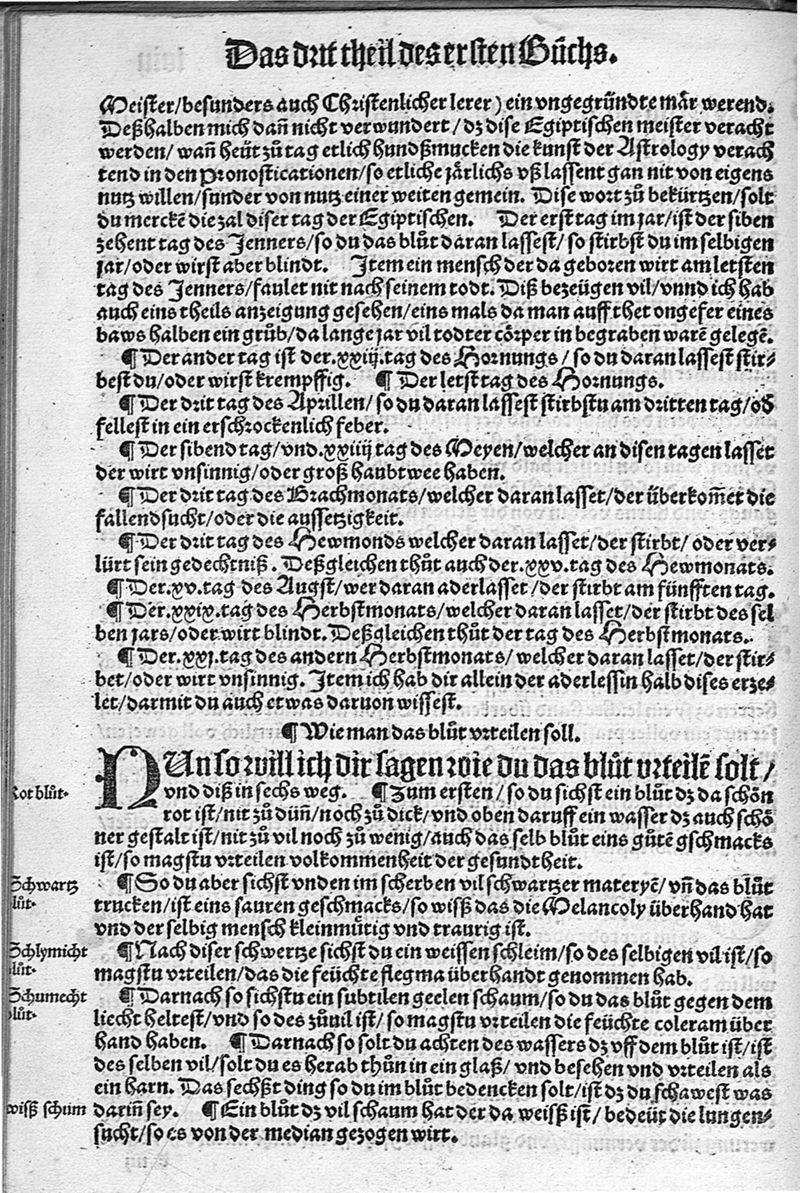 Das drit theil des ersten Bůchs.
Meister/besunders auch Christenlicher lerer) ein vngegründte mär werend.
Deßhalben mich dañ nicht verwundert/dz dise Egiptischen meister veracht
werden/wañ heüt zů tag etlich hundßmucken die kunst der Astrology verach
tend in den Pronosticationen/so etliche järlichs vß lassent gan nit von eigens
nutz willen/sunder von nutz einer weiten gemein. Dise wort zů bekürtzen/solt
du merckẽ die zal diser tag der Egiptischen. Der erst tag im jar/ist der siben
zehent tag des Jenners/so du das blůt daran lassest/so stirbst du im selbigen
jar/oder wirst aber blindt. Item ein mensch der da geboren wirt am letsten
tag des Jenners/faulet nit nach seinem todt. Diß bezeügen vil/vnnd ich hab
auch eins theils anzeigung gesehen/eins mals da man auff thet ongefer eines
baws halben ein grůb/da lange jar vil todter cörper in begraben warẽ gelegẽ.
¶ Der ander tag ist der.xxiij.tag des Hornungs/so du daran lassest stir-
best du/oder wirst krempffig. ¶ Der letst tag des Hornungs.
¶ Der drit tag des Aprillen/so du daran lassest stirbstu am dritten tag/od̕
fellest in ein erschrockenlich feber.
¶ Der sibend tag/vnd.xxiiij tag des Meyen/welcher an disen tagen lasset
der wirt vnsinnig/oder groß haubtwee haben.
¶ Der drit tag des Brachmonats/welcher daran lasset/der überkom̃et die
fallendsucht/oder die aussetzigkeit.
¶ Der drit tag des Hewmonds welcher daran lasset/der stirbt/ oder ver-
lürt sein gedechtniß. Deßgleichen thůt auch der.xxv.tag des Hewmonats.
¶ Der.xv.tag des Augst/wer daran aderlasset/der stirbt am fünfften tag.
¶ Der.xxix.tag des Herbstmonats/welcher daran lasset/der stirbt des sel
ben jars/oder wirt blindt. Deßgleichen thůt der tag des Herbstmonats.
¶ Der.xxj.tag des andern Herbstmonats/ welcher daran lasset/der stir-
bet/oder wirt vnsinnig. Item ich hab dir allein der aderlessin halb dises erze-
let/darmit du auch etwas daruon wissest.
¶ Wie man das blůt vrteilen soll.
NUn so will ich dir sagen wie du das blůt vrteilẽ solt/
Rot blůt.
vnd diß in sechs weg. ¶ Zum ersten/so du sichst ein blůt dz da schön
rot ist/nit zů düñ/noch zů dick/vnd oben daruff ein wasser dz auch schö
ner gestalt ist/nit zů vil noch zů wenig/auch das selb blůt eins gůtẽ gschmacks
ist/so magstu vrteilen volkommenheit der gesundtheit.
Schwartz
blůt.
¶ So du aber sichst vnden im scherben vil schwartzer materyẽ/vñ das blůt
trucken/ist eins sauren geschmacks/so wiß das die Melancoly überhand hat
vnd der selbig mensch kleinmütig vnd traurig ist.
Schlymicht
blůt.
¶ Nach diser schwertze sichst du ein weissen schleim/so des selbigen vil ist/so
magstu vrteilen/das die feüchte flegma überhandt genommen hab.
Schumecht
blůt.
¶ Darnach so sichstu ein subtilen geelen schaum/so du das blůt gegen dem
liecht heltest/vnd so des zůuil ist/so magstu vrteilen die feüchte coleram über
hand haben. ¶ Darnach so solt du achten des wassers dz vff dem blůt ist/ist
des selben vil/solt du es herab thůn in ein glaß/vnd besehen vnd vrteilen als
ein harn. Das sechßt ding so du im blůt bedencken solt/ist dz du schawest was
wiß schum
dariñ sey. ¶ Ein blůt dz vil schaum hat der da weiß ist/ bedeüt die lungen-
sucht/so es von der median gezogen wirt.